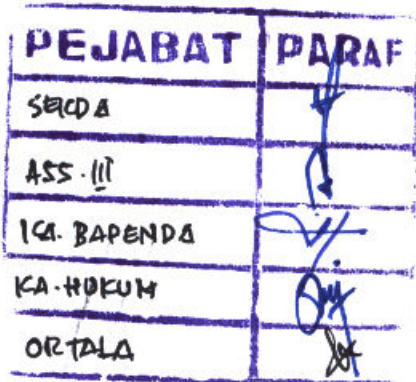 PEJABAT PARAF
SEKDA
ASS. III
KA. BAPENDA
KA. HUKUM
ORTALA